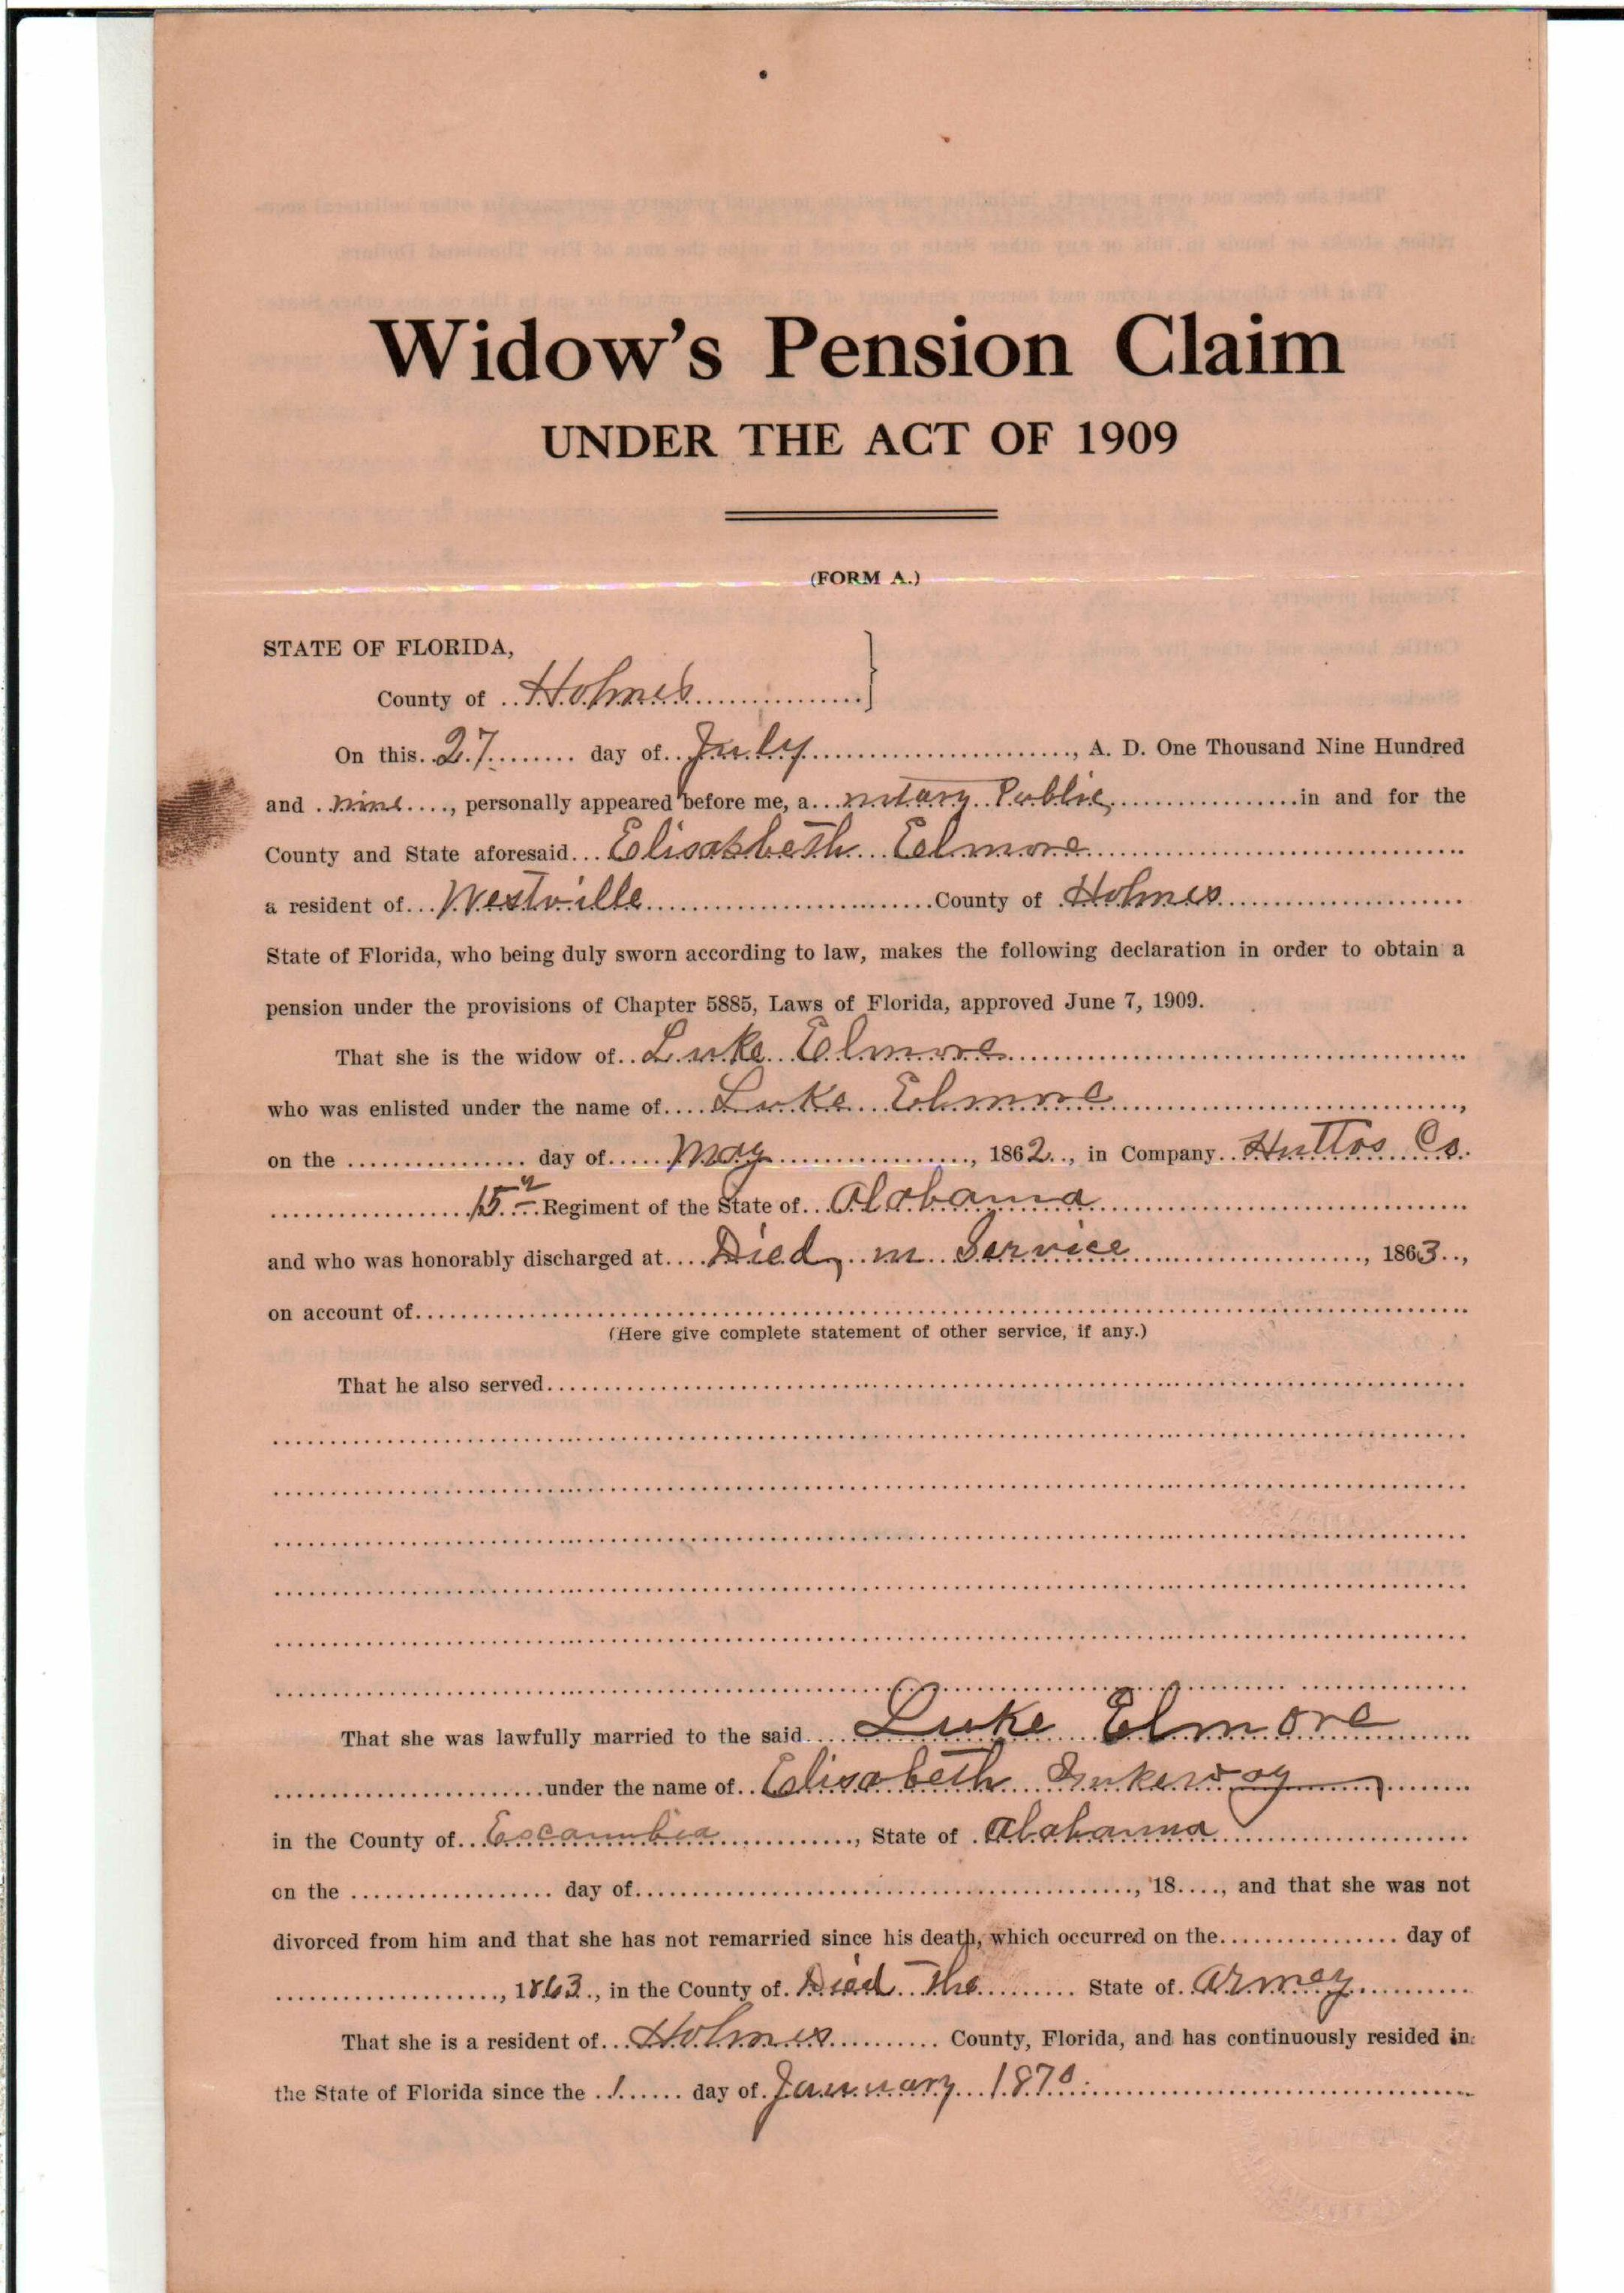 Widow's Pension Claim
UNDER THE ACT OF 1909
(FORM A.)
STATE OF FLORIDA,
County of Holmes
On this 27 day of July, A. D. One Thousand Nine Hundred
and nine, personally appeared before me, a notary Public, in and for the
County and State aforesaid Elisabeth Eelmore
a resident of Westville County of Holmes
State of Florida, who being duly sworn according to law, makes the following declaration in order to obtain a
pension under the provisions of Chapter 5885, Laws of Florida, approved June 7, 1909.
That she is the widow of Luke Elmore
who was enlisted under the name of Luke Elmore,
on the day of May, 1862, in Company Huttos Co.
15 Regiment of the State of Alabama
and who was honorably discharged at Died in Service, 1863,
on account of
(Here give complete statement of other service, if any.)
That he also served
That she was lawfully married to the said Luke Elmore
under the name of Elisabeth
in the County of Escambia, State of Alabama
on the day of, 18, and that she was not
divorced from him and that she has not remarried since his death, which occurred on the day of
, 1863, in the County of Died The State of Armey
That she is a resident of Holmes County, Florida, and has continuously resided in
the State of Florida since the 1 day of January 1870